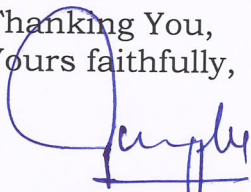 Thanking You,
Yours faithfully,